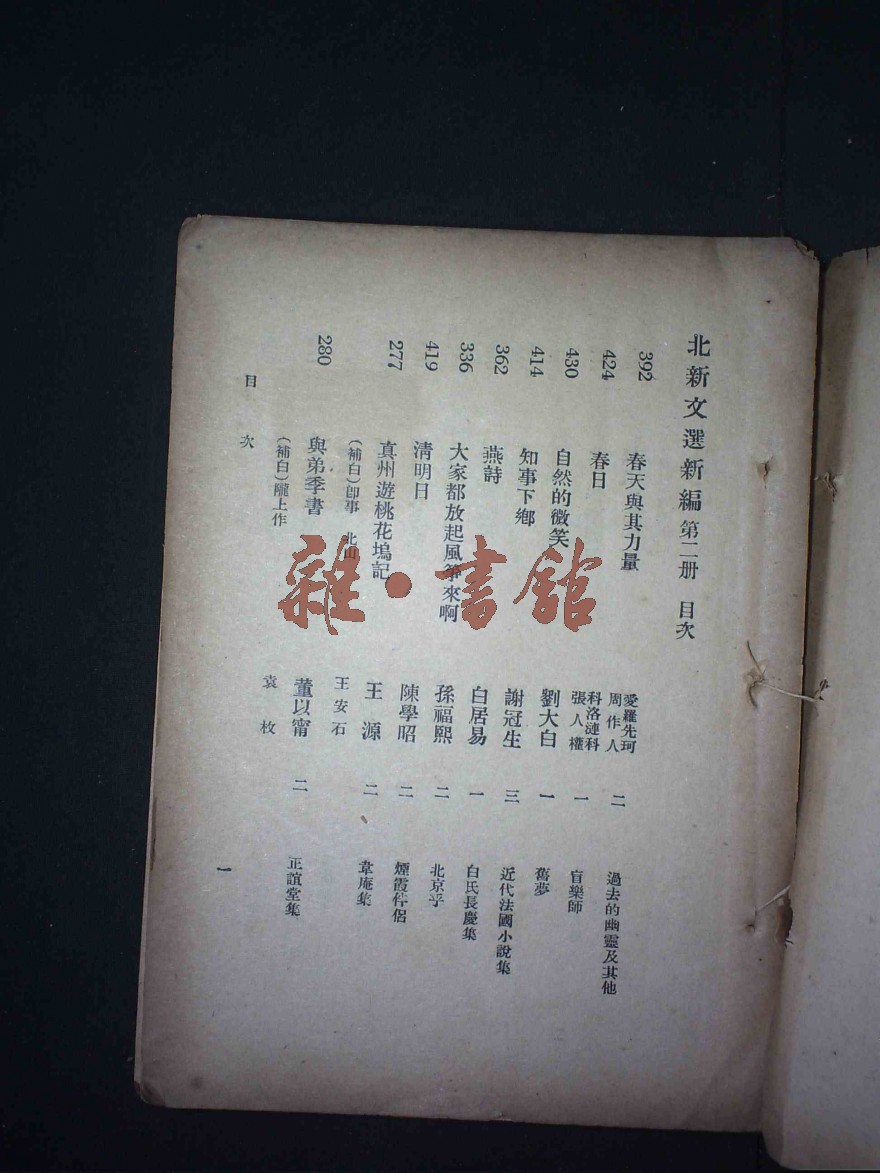 北新文選新編 第二册 目次
392 春天與其力量 愛羅先珂 周作人 二 過去的幽靈及其他
424 春日 科洛漣科 張人權 一 盲樂師
430 自然的微笑 劉大白 一 舊夢
414 知事下鄉 謝冠生 三 近代法國小說集
362 燕詩 白居易 一 白氏長慶集
336 大家都放起風箏來啊 孫福熙 二 北京乎
419 清明日 陳學昭 二 煙霞伴侶
277 真州遊桃花塢記 王源 二 韋庵集
(補白)卽事 北山 王安石
280 與弟季書 董以甯 二 正誼堂集
(補白)隴上作 袁枚
目次 一
雜·書館